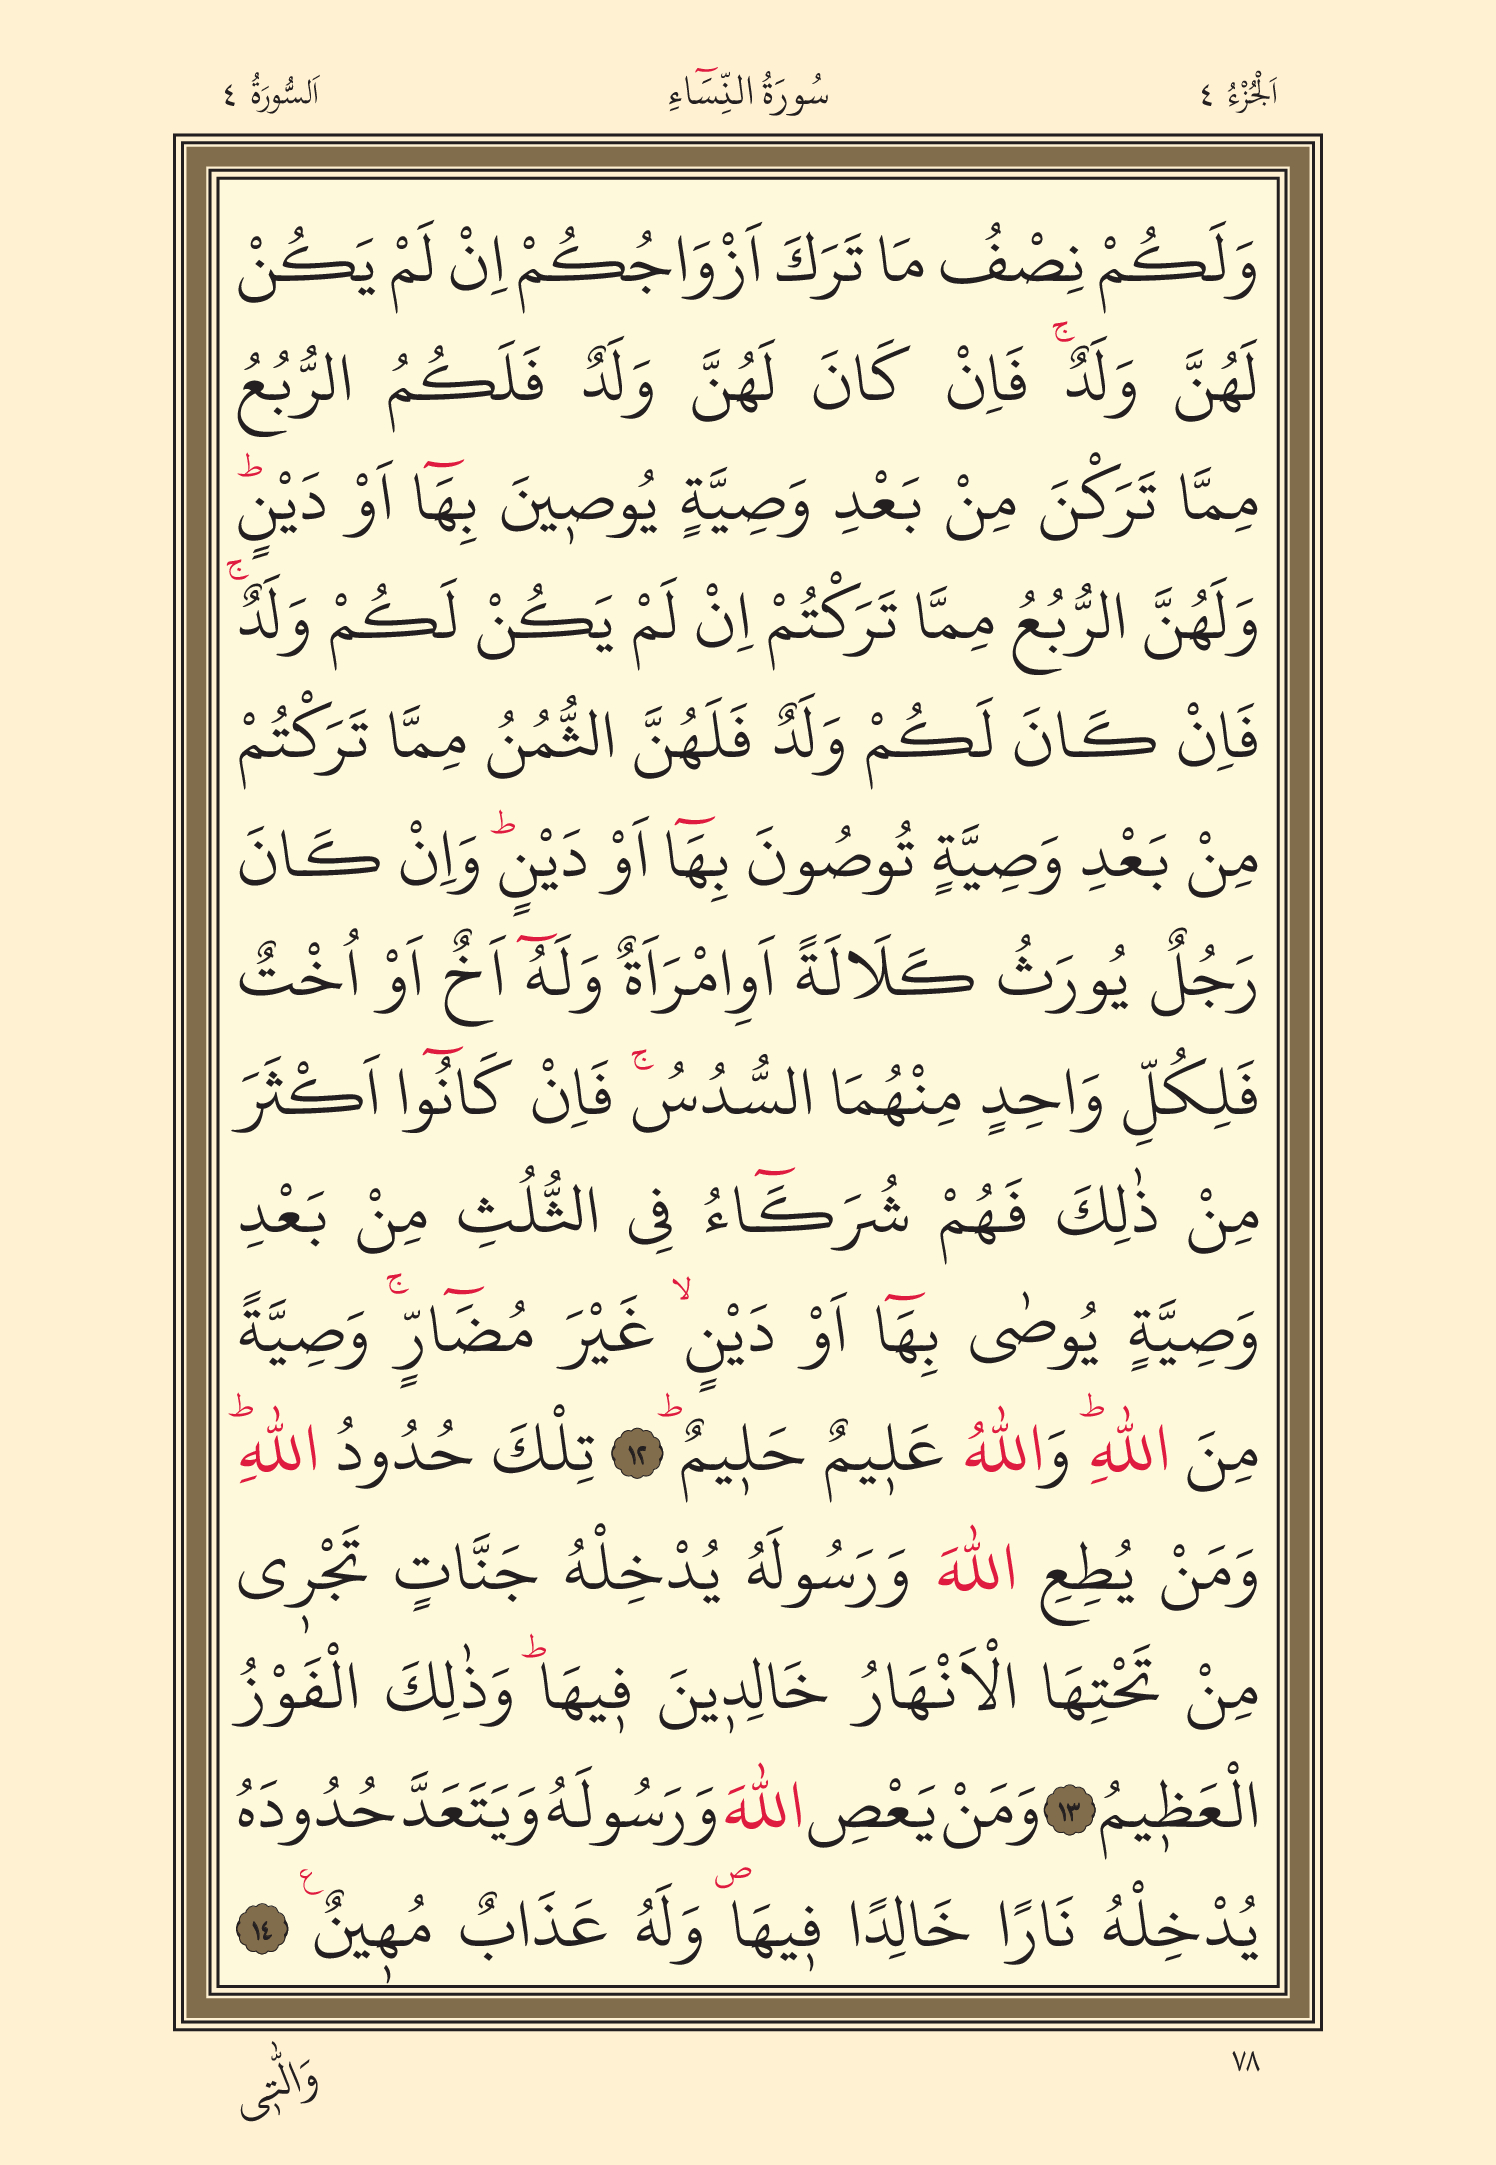 اَلْجُزْءُ ٤
سُورَةُ النِّسَٓاءِ
اَلسُّورَةُ ٤
وَلَكُمْ نِصْفُ مَا تَرَكَ اَزْوَاجُكُمْ اِنْ لَمْ يَكُنْ
لَهُنَّ وَلَدٌۚ فَاِنْ كَانَ لَهُنَّ وَلَدٌ فَلَكُمُ الرُّبُعُ
مِمَّا تَرَكْنَ مِنْ بَعْدِ وَصِيَّةٍ يُوصٖينَ بِهَٓا اَوْ دَيْنٍؕ
وَلَهُنَّ الرُّبُعُ مِمَّا تَرَكْتُمْ اِنْ لَمْ يَكُنْ لَكُمْ وَلَدٌۚ
فَاِنْ كَانَ لَكُمْ وَلَدٌ فَلَهُنَّ الثُّمُنُ مِمَّا تَرَكْتُمْ
مِنْ بَعْدِ وَصِيَّةٍ تُوصُونَ بِهَٓا اَوْ دَيْنٍؕ وَاِنْ كَانَ
رَجُلٌ يُورَثُ كَلَالَةً اَوِامْرَاَةٌ وَلَهُٓ اَخٌ اَوْ اُخْتٌ
فَلِكُلِّ وَاحِدٍ مِنْهُمَا السُّدُسُۚ فَاِنْ كَانُٓوا اَكْثَرَ
مِنْ ذٰلِكَ فَهُمْ شُرَكَٓاءُ فِى الثُّلُثِ مِنْ بَعْدِ
وَصِيَّةٍ يُوصٰى بِهَٓا اَوْ دَيْنٍۙ غَيْرَ مُضَٓارٍّۚ وَصِيَّةً
مِنَ اللّٰهِؕ وَاللّٰهُ عَلٖيمٌ حَلٖيمٌؕ ١٢ تِلْكَ حُدُودُ اللّٰهِؕ
وَمَنْ يُطِعِ اللّٰهَ وَرَسُولَهُ يُدْخِلْهُ جَنَّاتٍ تَجْرٖى
مِنْ تَحْتِهَا الْاَنْهَارُ خَالِدٖينَ فٖيهَاؕ وَذٰلِكَ الْفَوْزُ
الْعَظٖيمُ ١٣ وَمَنْ يَعْصِ اللّٰهَ وَرَسُولَهُ وَيَتَعَدَّ حُدُودَهُ
يُدْخِلْهُ نَارًا خَالِدًا فٖيهَاࣕ وَلَهُ عَذَابٌ مُهٖينٌࣖ ١٤
٧٨
وَالّٰتٖى